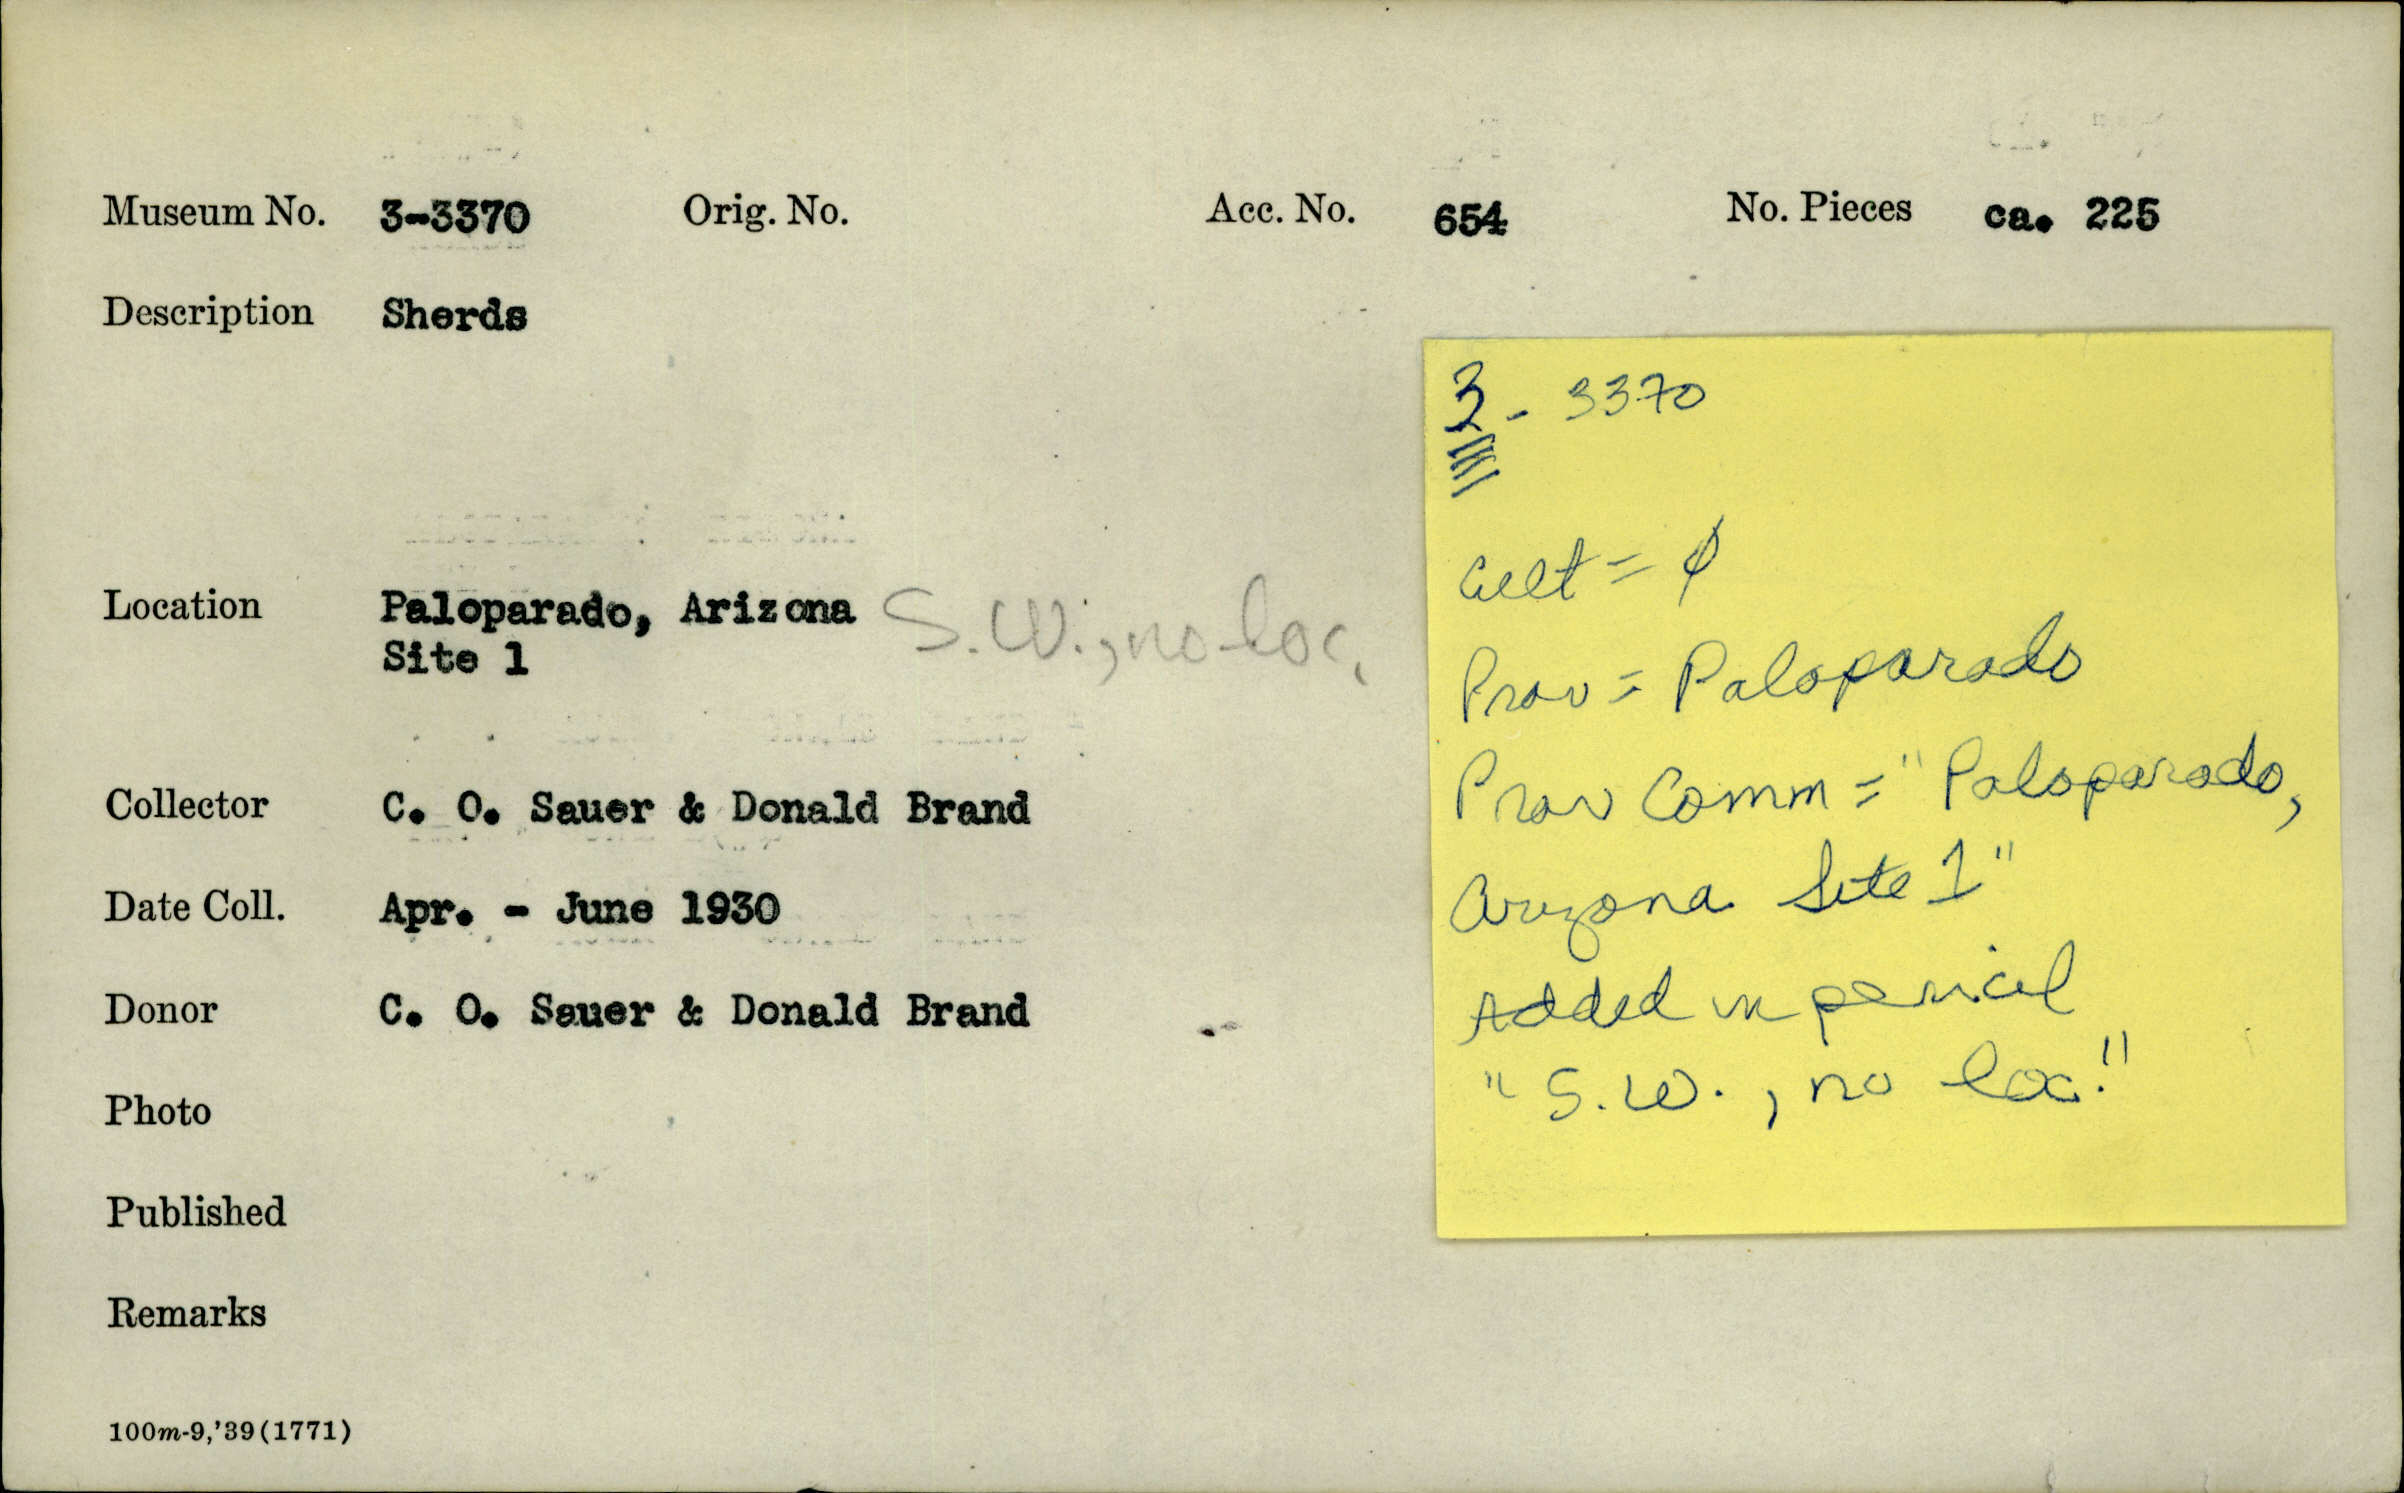 Museum No. 3-3370 Orig. No. Acc. No. 654 No. Pieces ca. 225
Description Sherds
Location Paloparado, Arizona S.W., no loc.
Site 1
Collector C. O. Sauer & Donald Brand
Date Coll. Apr. - June 1930
Donor C. O. Sauer & Donald Brand
Photo
Published
Remarks
100m-9,'39(1771)
3 - 3370
Cult = φ
Prov = Paloparado
Prov Comm = "Paloparado,
Arizona Site 1"
Added in pencil
"S.W., no loc."